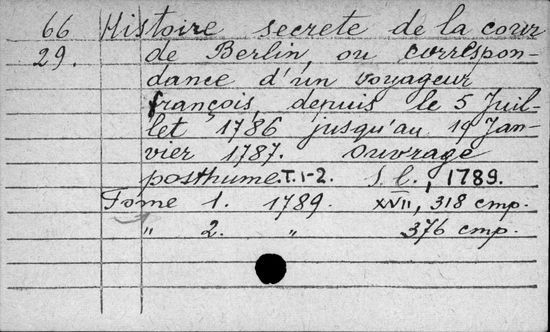 66 Histoire secrete de la cour
29. de Berlin, ou correspon-
dance d'un voyageur
françois, depuis le 5 Juil-
let 1786 jusqu'au 19 Jan-
vier 1787. Ouvrage
posthume. T. 1-2. S. l., 1789.
Tome 1. 1789. XVII, 318 cmp.
" 2. " 376 cmp.